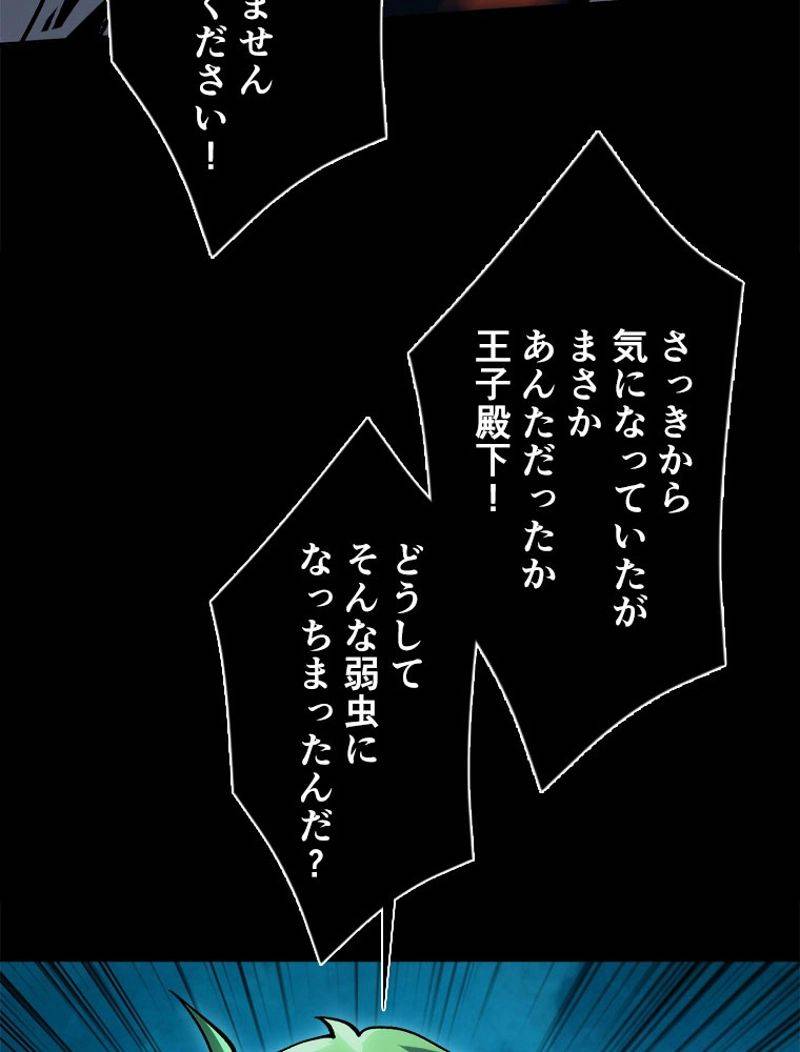 ません
ください！
さっきから
気になっていたが
まさか
あんただったか
王子殿下！
どうして
そんな弱虫に
なっちまったんだ？